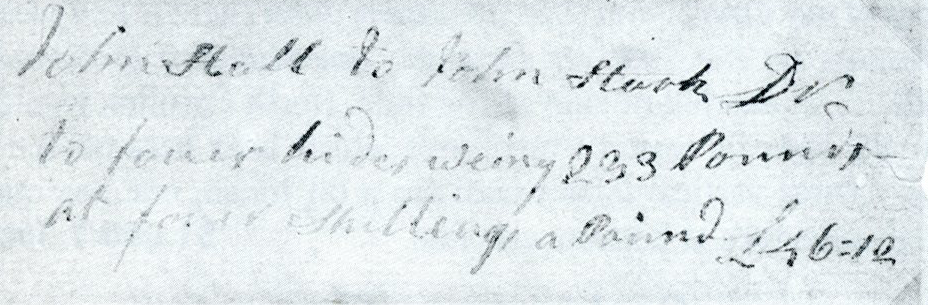 John Hall to John Stark Dr
to fower hides weing 233 Pounds
at fower shillings a Pound £46=12